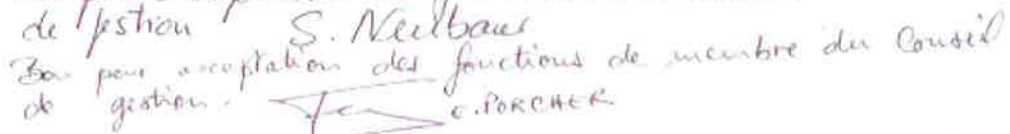 de gestion S. Neulbaus
Bon pour acceptation des fonctions de membre du Conseil
de gestion. C. PORCHER